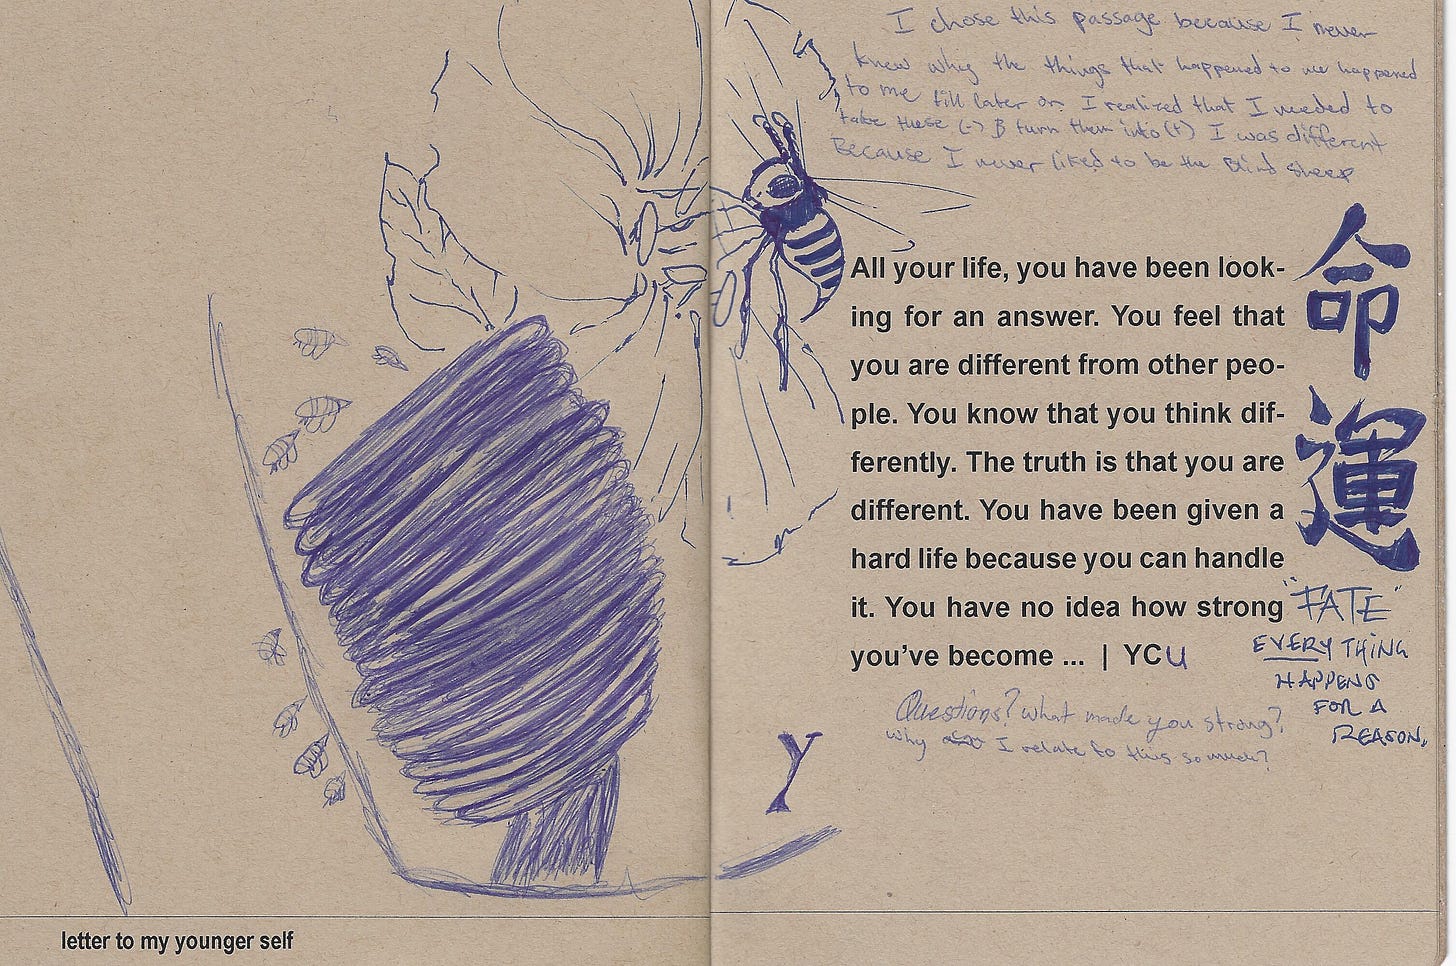 I chose this passage because I never
knew why the things that happened to me happened
to me till later on I realized that I needed to
take these (-) & turn them into (+) I was different
Because I never liked to be the Blind sheep
All your life, you have been look-
ing for an answer. You feel that
you are different from other peo-
ple. You know that you think dif-
ferently. The truth is that you are
different. You have been given a
hard life because you can handle
it. You have no idea how strong
you've become ... | YCU
命
運
"FATE"
EVERYTHING
HAPPENS
FOR A
REASON.
Questions? what made you strong?
why I relate to this so much?
Y
letter to my younger self